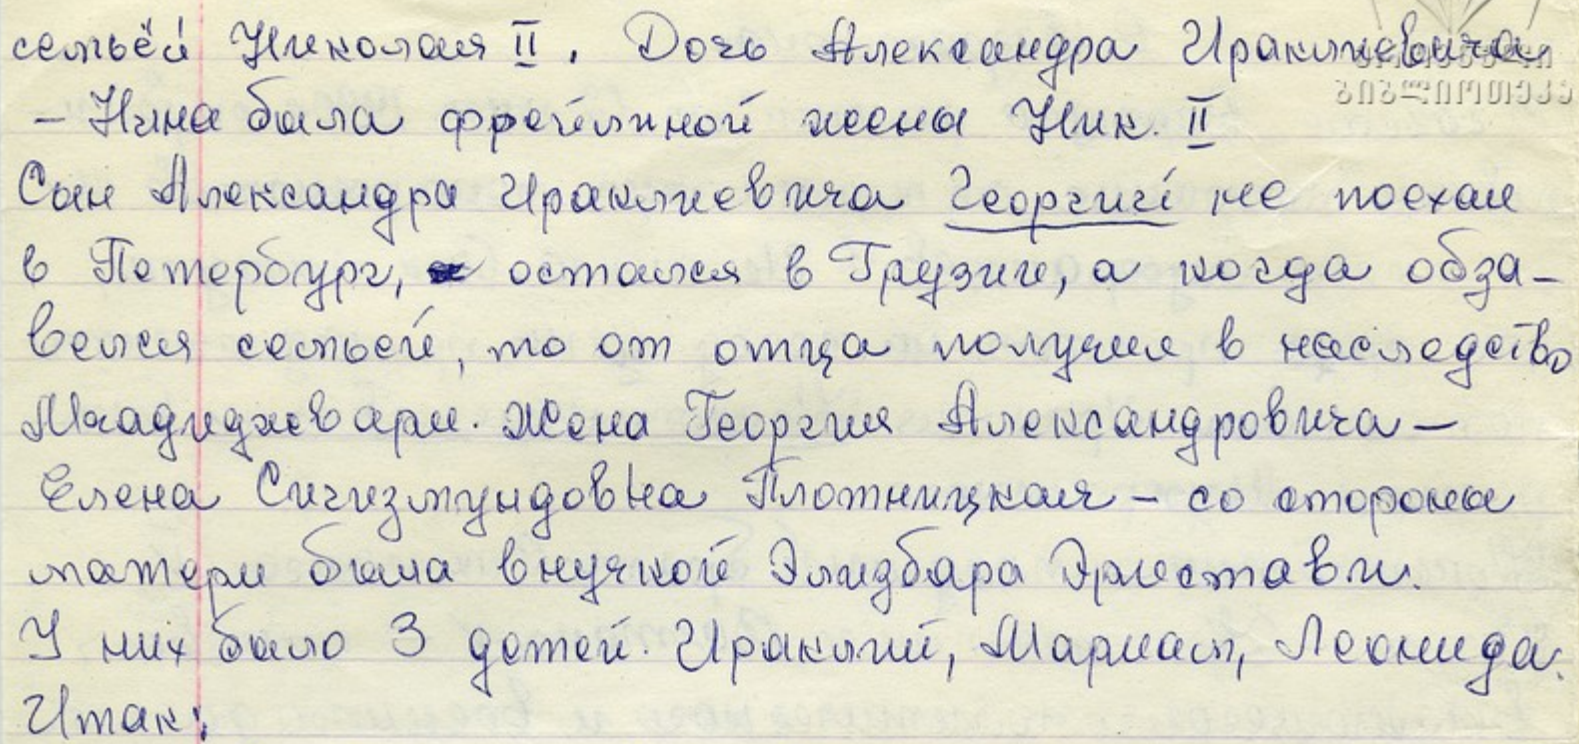 семьёй Николая II. Дочь Александра Ираклиевича
– Нина была фрейлиной жены Ник. II
Сын Александра Ираклиевича Георгий не поехал
в Петербург, остался в Грузии, а когда обза-
велся семьей, то от отца получил в наследство
Мхадиджвари. Жена Георгия Александровича –
Елена Сигизмундовна Плотницкая – со стороны
матери была внучкой Элизбара Эристави.
У них было 3 детей. Ираклий, Мариам, Леонида.
Итак:
ბიბლიოთეკა